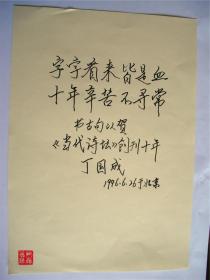 字字看来皆是血
十年辛苦不寻常
书古句以贺
《当代诗坛》创刊十年
丁国成
1996.6.26于北京